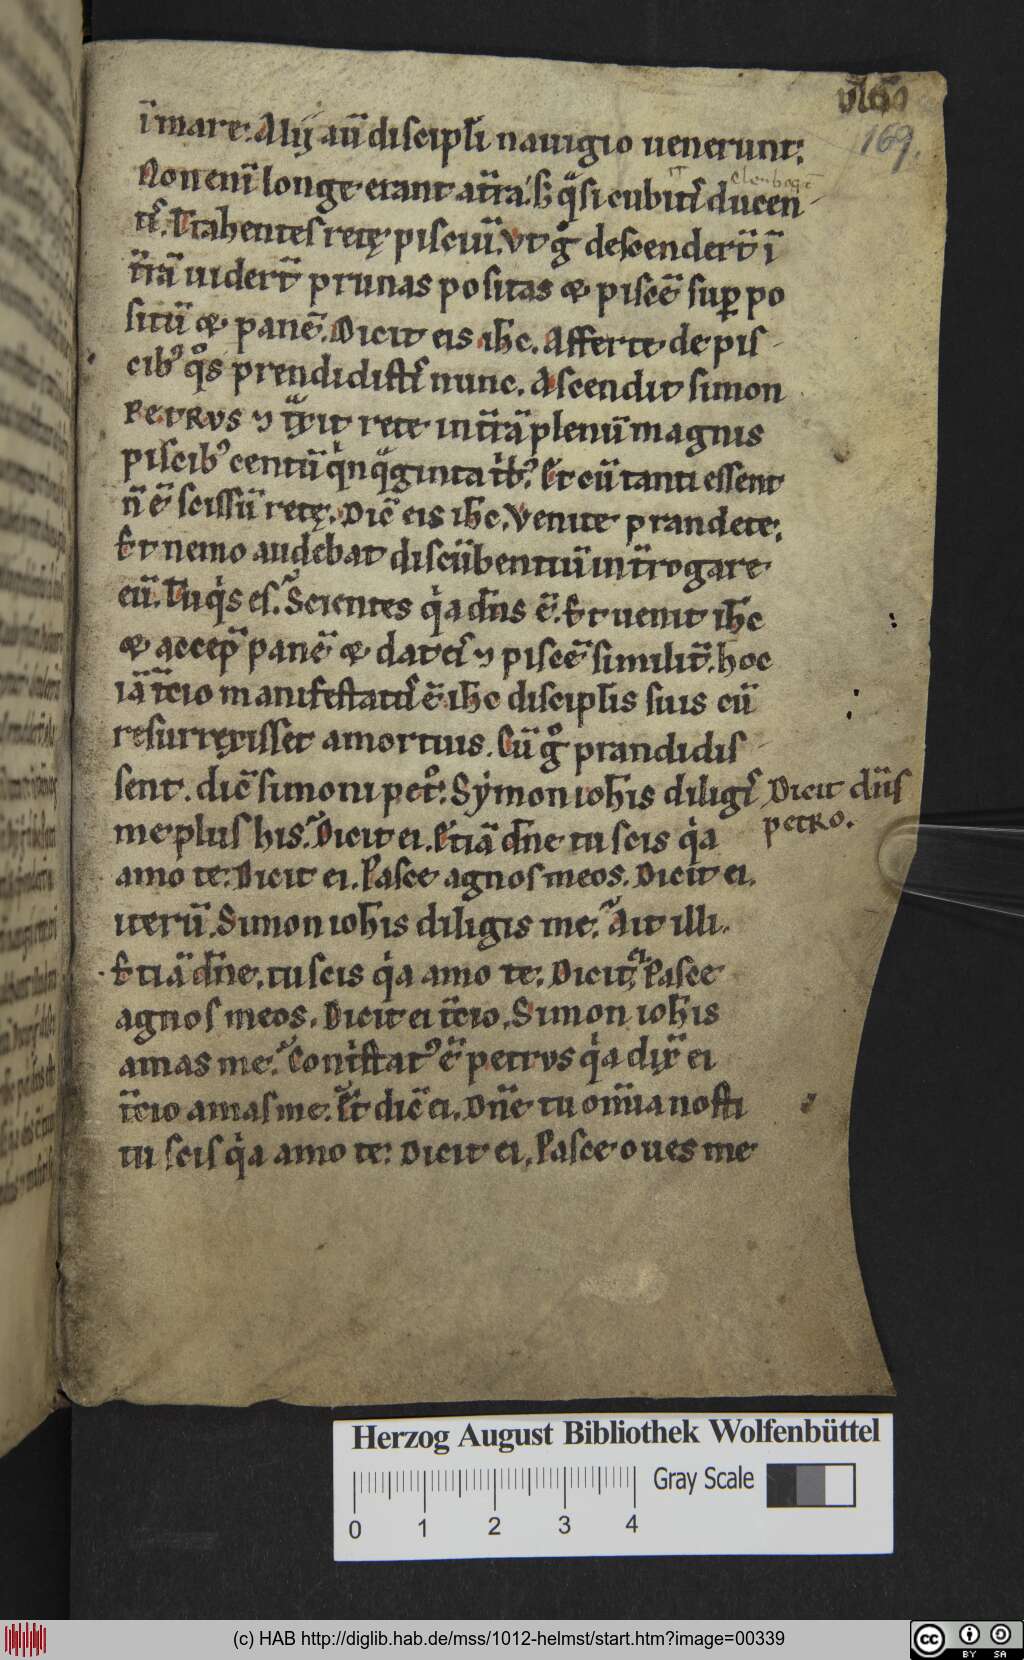 169.
ī mare. Alij aū discipl̄i nauigio uenerunt.
Non enī longe erant a t̄ra. s; q̄si cubitis ducen
tis. Trahentes retę pisciū. Vt gͦ descendert̄ ī
t̄rā uidert̄ prunas positas & piscē sup̱po
sitū & panē. Dicit eis ih̄c. Afferte de pis
cibꝰ qͦs prendidistis nunc. Ascendit simon
PETRVS ⁊ trͣxit rete in t̄rā plenū magnis
piscibꝰ centū qͥnqͣginta tͥbꝰ. Et cū tanti essent
n̄ ē scissū retę. Dic̄ eis ih̄c. Venite prandete.
Et nemo audebat discūbentiū int̄rogare
eū. Tu qͥs es. Scientes qͥa dn̄s ē. Et uenit ih̄c
& accep̄ panē & dat eis ⁊ piscē similit̄. hoc
iā t̄cio manifestatus ē ih̄c discipl̄is suis cū
resurrexisset a mortuis. Cū gͦ prandidis
sent. dic̄ simoni petͦ. Symon ioh̄is diligis
Dicit dn̄s
petro.
me plus his. Dicit ei. Etiā dn̄e tu scis qͥa
amo te. Dicit ei. Pasce agnos meos. Dicit ei.
iterū. Simon ioh̄is diligis me. Ait illi.
Etiā dn̄e. tu scis qͥa amo te. Dicit ei Pasce
agnos meos. Dicit ei t̄cio. Simon ioh̄is
amas me. Contstatꝰ ē petrvs qͥa dix̄ ei
t̄cio amas me. Et dic̄ ei. Dn̄e tu om̄ia nosti
tu scis qͥa amo te. Dicit ei. Pasce oues me
Herzog August Bibliothek Wolfenbüttel
Gray Scale
0 1 2 3 4
(c) HAB http://diglib.hab.de/mss/1012-helmst/start.htm?image=00339
cc BY SA